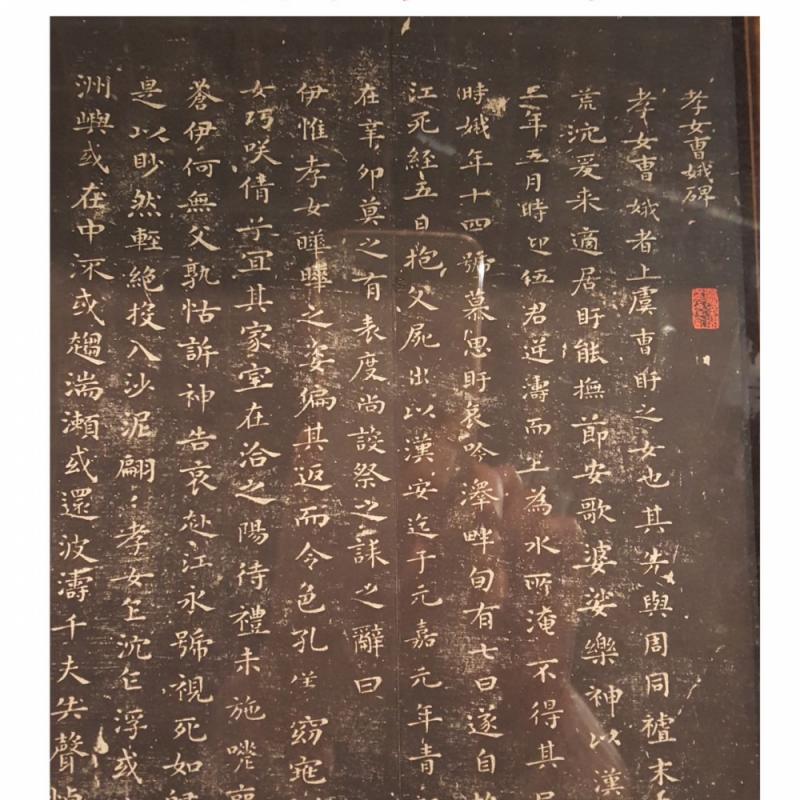 孝女曹娥碑
孝女曹娥者上虞曹盱之女也其先與周同禮末
荒沉爰来適居盱能撫節安歌婆娑樂神以漢
二年五月時迎伍君逆濤而上為水所淹不得其
時娥年十四號慕思盱哀吟澤畔旬有七日遂自
江死經五日抱父屍出以漢安迄于元嘉元年青
在辛卯莫之有表度尚設祭之誄之辭曰
伊惟孝女曄曄之姿偏其返而令色孔窈窕
女巧咲倩子宜其家室在洽之陽待禮未施嗟
蒼伊何無父孰怙訴神告哀赴江永號視死如
是以眇然輕絕投入沙泥翩〻孝女乍沉乍浮或
洲嶼或在中流或趨湍瀬或還波濤千夫失聲悼